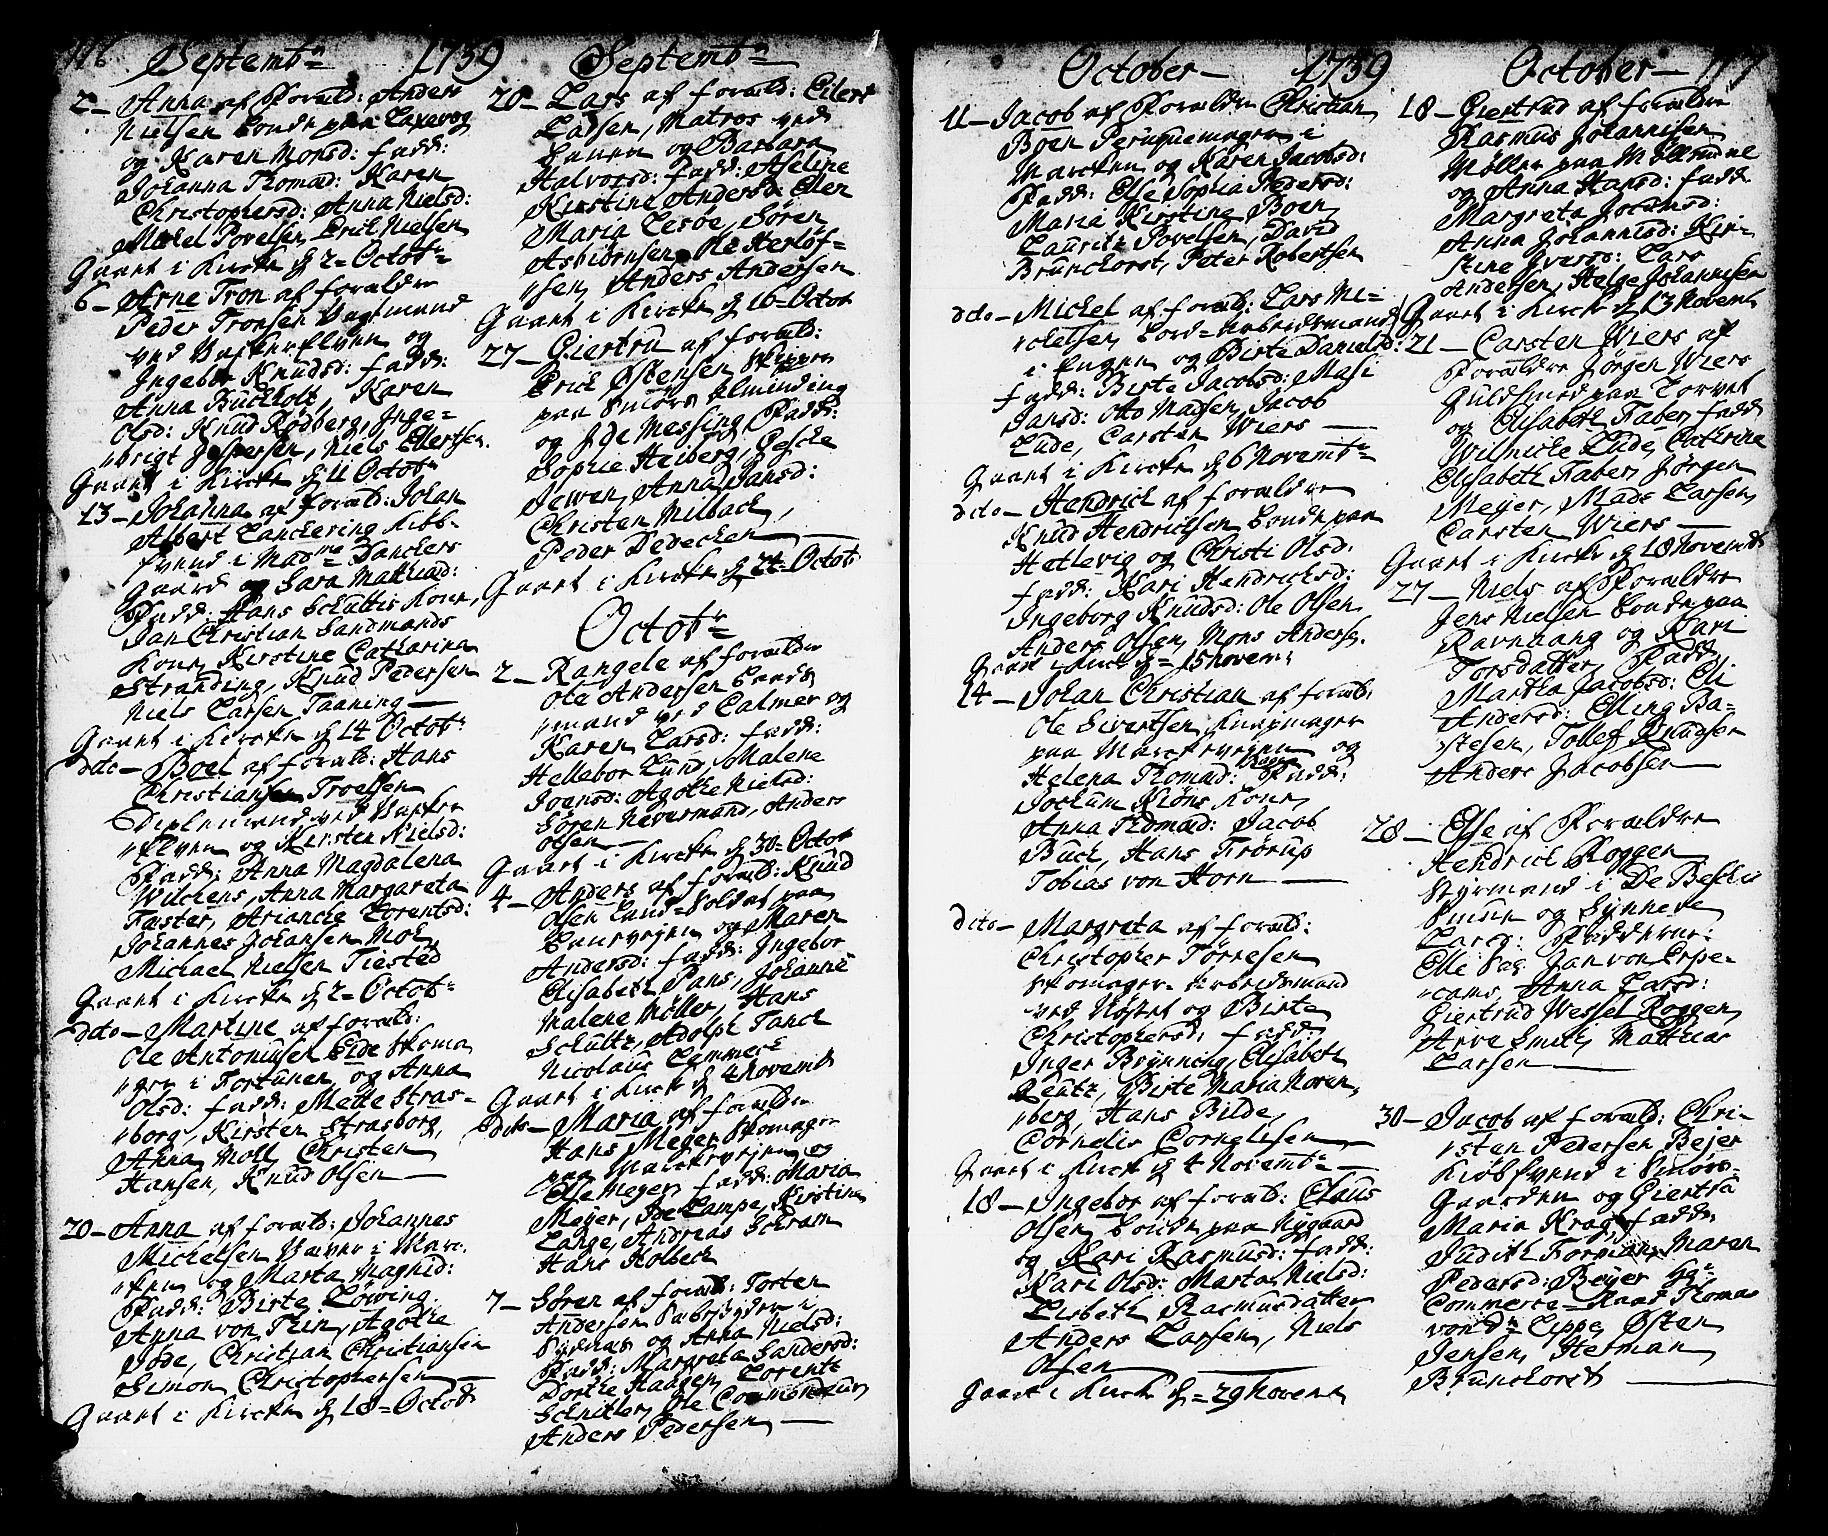 116 Septembr 1739 Septembr
2 – Anna af Foræld: Anders
Nielsen bonde paa Laxevog
og Karen Monsd: fadd:
Johanna Thomæd: Karen
Christophersd: Anna Nielsd:
Mickel Povelsen, Erick Nielsen
Gaaet i Kircke d 2 = Octobr
6 – Arne Tron af forældre
Peder Tronsen
ved og
Ingebor Knudsd: fadd:
Anna Buchholtz, Karen
Olsd: Knud Rødberg, Inge=
brigt Jespersen, Niels Ellertsen.
Gaaet i Kircke d 11 Octobr
13 – Johanna af foræld: Johan
Albert Lanckering Kiøb-
svend i Madme Danckers
Gaard og Sara Mathiad:
Fadd: Hans Schultis Kone,
Jan Christian Sandmands
Kone, Kirstine Catharina
Stranding, Knud Pedersen
Niels Larsen Taaning –
Gaaet i Kircke d 14 Octobr
dito – Boel af foræld: Hans
Christiansen Troelsen
ved
og Kirsten Nielsd:
Fadd: Anna Magdalena
Wilchens, Anna Margareta
Faster, Ariancke Lorentsd:
Johannes Johansen Mol,
Michael Nielsen Tiested
Gaaet i Kircke d 2 = Octobr
dito – Martine af foræld:
Ole Antoniusen Eide Skoma
ger i Fortunen og Anna
Olsd: fadd: Mette Stras-
borg, Kirsten Strasborg,
Anna Moll Christen
Hansen, Knud Olsen –
20 – Anna af foræld: Johannes
Michelsen Væver i Marc-
ken og Marta Magnid:
Fadd: Birte Løwing
Anna von Thin, Agothe
Jøde, Christian Christiansen
Simon Christophersen –
Gaaet i Kircke d 18 = Octob
20 – Lars af foræld: Eilert
Larsen, Matros ved
og Barbara
Halvorsd: fadd: Aseline
Kirstine Andersd: Elen
Maria Lesøe, Søren
Asbiørnsen, Ole Herlöf=
sen, Anders Andersen
Gaaet i Kircke d 16 = Octob
27 – Giertru af foræld:
Erick Østensen Skipper
paa Smørs Alminding
og Ide Messing Fadd:
Sophie Heiberg, Gescke
Jewen, Anna Jansd:
Christen Milbach,
Peder Dedecken –
Gaaet i Kircke d 24 = Octob
Octobr
2 – Rangele af forældre
Ole Andersen
mand ved Calmer og
Karen Larsd: fadd:
Hellebor Lund, Malene
Ivensd: Agothe Nielsd:
Søren Nevermand, Anders
Olsen –
Gaaet i Kircke d 30 = Octob
4 – Anders af foræld: Knud
Olsen Land = Soldat paa
og Maren
Andersd: fadd: Ingebor
Elisabeth Pans, Johanne
Malene Møller, Hans
Schultz, Adolph Tanck
Nicolaus Lammers
Gaaet i Kirck d 4 Novemb
dito – Maria af forældre
Hans Meyer Skomager
paa Marckevejen og
Else Meyer, fadd: Maria
Meyer, Ide Lampe, Kirstina
Lange, Andreas Schram
Hans Holbeck
7 – Søren af foræld: Torten
Andersen i
Sydnes og Anna Nielsd:
Fadd: Margreta Sandersd:
Dorthe Haagen, Lorentz
Schnitler, Ole
Anders Pedersen –
October – 1739 October – 117
11 – Jacob af Forældre Christian
Boen Peruquemager i
Marcken og Karen Jacobsd:
Fadd: Else Sophia Pedersd:
Maria Kirstine Boen,
Lauritz Povelsen, David
Brunchorst, Peter Robertsen
dito – Mickel af foræld: Lars Mi=
ckelsen, Bord = Arbeidsmand
i Engen og Birte Danielsd:
Fadd: Birte Jacobsd: Masi
Jansd: Otto Madsen, Jacob
Lude, Carsten Wiers –
Gaaet i Kircke d 6 Novembr
dito – Hendrick af forældre
Knud Hendricksen bonde paa
Hetlevig og Christi Olsd:
fadd: Kari Hendricksd:
Ingeborg Knudsd: Ole Olsen,
Anders Olsen, Mons Anders.
Gaaet i Kirck d = 15 Novem:
14 – Johan Christian af foræld:
Ole Sivertsen Knapmager
paa Marckevejen og
Helena Thomæd: Fadd:
Jochum Kiøns Kone,
Anna Thomæd: Jacob
Buck, Hans Trørup
Tobias von Horn –
dito – Margreta af foræld:
Christopher Tørresen
Skomager = Arbeidsmand
ved Nøstet og Birte
Christophersd: fadd:
Inger Brynning, Elisabeth
Reutz, Birte Maria Noren,
berg, Hans Bilde,
Cornelis Cornelisen
Gaaet i Kirck d 4 Novembr –
18 – Ingebor af foræld: Claus
Olsen bonde paa Nygaard
og Kari Rasmusd: fadd:
Kari Olsd: Marta Nielsd:
Lisbeth Rasmusdatter
Anders Larsen, Niels
Olsen –
Gaaet i Kirck d = 29 Novemb
18 – Giertrud af forældre
Rasmus Johannisen
Møller paa Møllendal
og Anna Hansd: fadd
Margreta Jochumsd:
Anna Johannisd: Kir=
stine Iversd: Lars
Andersen, Helge Johannisen
Gaaet i Kirck d 13 Novemb
21 – Carsten Wiers af
Forældre Jørgen Wiers
Guldsmed paa Torvet
og Elisabeth Faber, fadd
Wilmicke Lude, Cathrine
Elisabeth Faber, Jørgen
Meyer, Mads Larsen,
Carsten Wiers –
Gaaet i Kircke d 18 Novemb
27 – Niels af Forældre
Jens Nielsen bonde paa
Ravnhang og Kari
Torsdatter, Fadd:
Martha Jacobsd: Eli
Andersd: Elling Ba=
stesen, Tollef Knudsen
Anders Jacobsen –
28 – Else af Forældre
Hendrick Roggen
Styrmand i De
og Synneve
Larsd: Fadderne:
Elle Jan von Erpe=
coms, Anna Larsd:
Giertrud Wessel Roggen,
Arve Smit, Mathias
Larsen –
30 – Jacob af foræld: Chri-
sten Pedersen Bejer
Kiøbsvend i Smørs-
Gaarden og Giertru
Maria Krag, fadd:
Judith Forman, Maren
Pedersd: Bejer Hr
Commerce = Raad Thomas
von der Lippe, Østen
Jensen, Herman
Brunchorst –